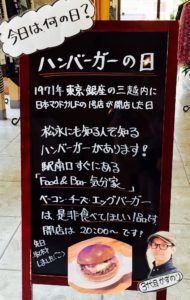 今日は何の日?
ハンバーガーの日
1971年 東京銀座の三越内に
日本マクドナルドの1号店が開店した日
松永にも知る人ぞ知る
ハンバーガーがあります!
駅南口すぐにある
「Food & Bar 気分家」
ベーコンチーズエッグバーガー
は是非食べてほしい1品です
開店は 20:00〜 です!
先日
しました!
3代目かずのり